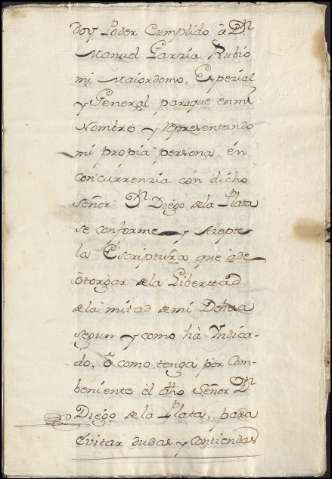 doy Poder Cumplido â Dn
Manuel Garzia Rubio
mi Maiordomo, Espezial
y General paraque en mi
Nombre y representando
mi propia persona, en
concurrenzia con dicho
Señor Dn Diego de la Plata
se conforme y azepte
la Escriptura que ha de
otorgar de la Libertad
de la mitad de mi Dehesa
segun y como hà Yndica-
do, ô como tenga por Com-
beniente êl dho Señor Dn
Diego de la Plata, para
êvitar dudas y contiendas